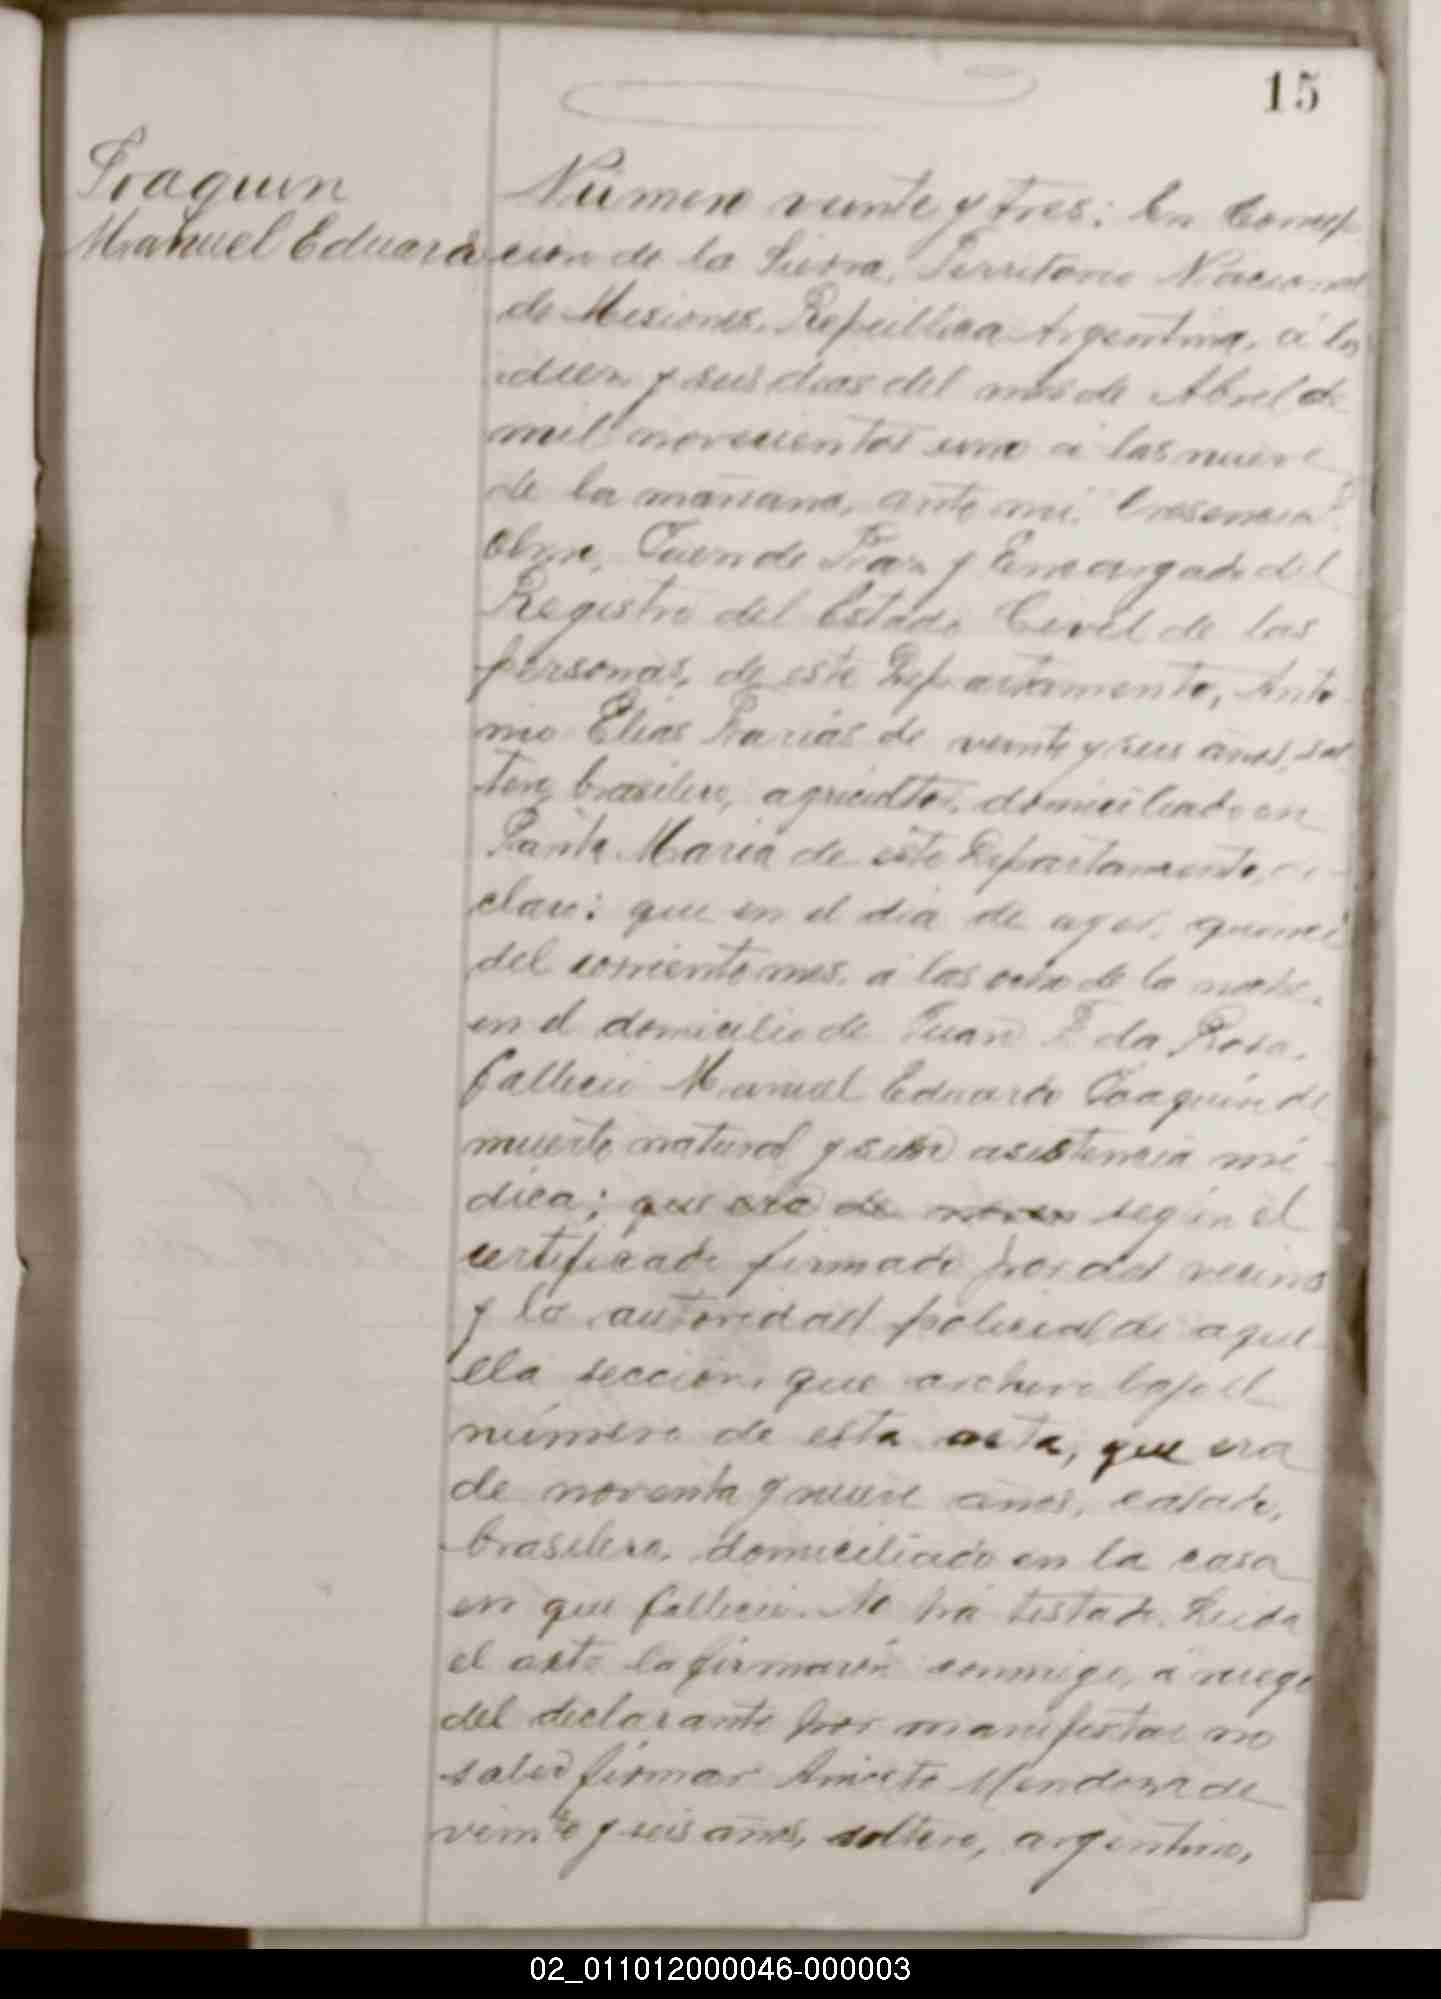 15
Joaquin
Manuel Eduardo
Número veinte y tres: En Concep
cion de la Sierra, Territorio Nacional
de Misiones, República Argentina, á los
diez y seis dias del mes de Abril de
mil novecientos uno á las nueve
de la mañana, ante mi,
Juez de Paz y Encargado del
Registro del Estado Civil de las
personas, de este Departamento, Anto
nio Elias Farias de veinte y seis años, sol
tero, brasilero, agricultor, domiciliado en
Santa Maria de este Departamento, de
claró: que en el dia de ayer, quince
del corriente mes, á las ocho de la noche,
en el domicilio de Juan F. da Rosa,
falleció Manuel Eduardo Joaquin de
muerte natural y sin asistencia mé
dica; que era de según el
certificado firmado por dos vecinos
y la autoridad policial de aque
lla sección, que archivo bajo el
número de esta acta, que era
de noventa y nueve años, casado,
brasilero, domiciliado en la casa
en que falleció. No há testado. Leida
el acta la firmarón conmigo, á ruego
del declarante por manifestar no
saber firmar Aniceto Mendoza de
veinte y seis años, soltero, argentino,
02_011012000046-000003